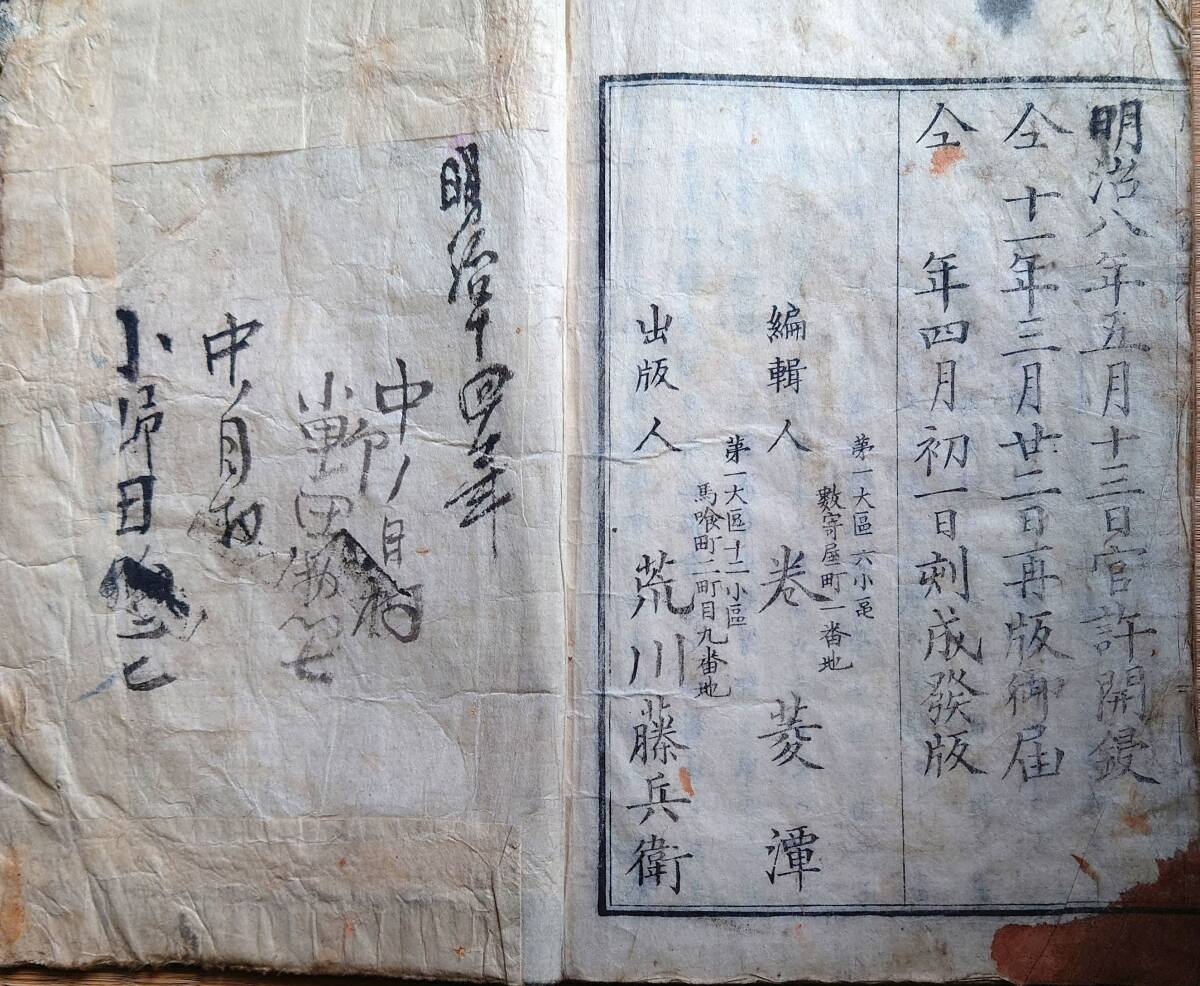 明治八年五月十三日官許開鋟
仝十一年三月廿二日再版御届
仝 年四月初一日刻成發版
第一大區六小區
數寄屋町一番地
編輯人 卷菱潭
第一大區十二小區
馬喰町二町目九番地
出版人 荒川藤兵衛
明治十四年
中ノ目村
中ノ目村